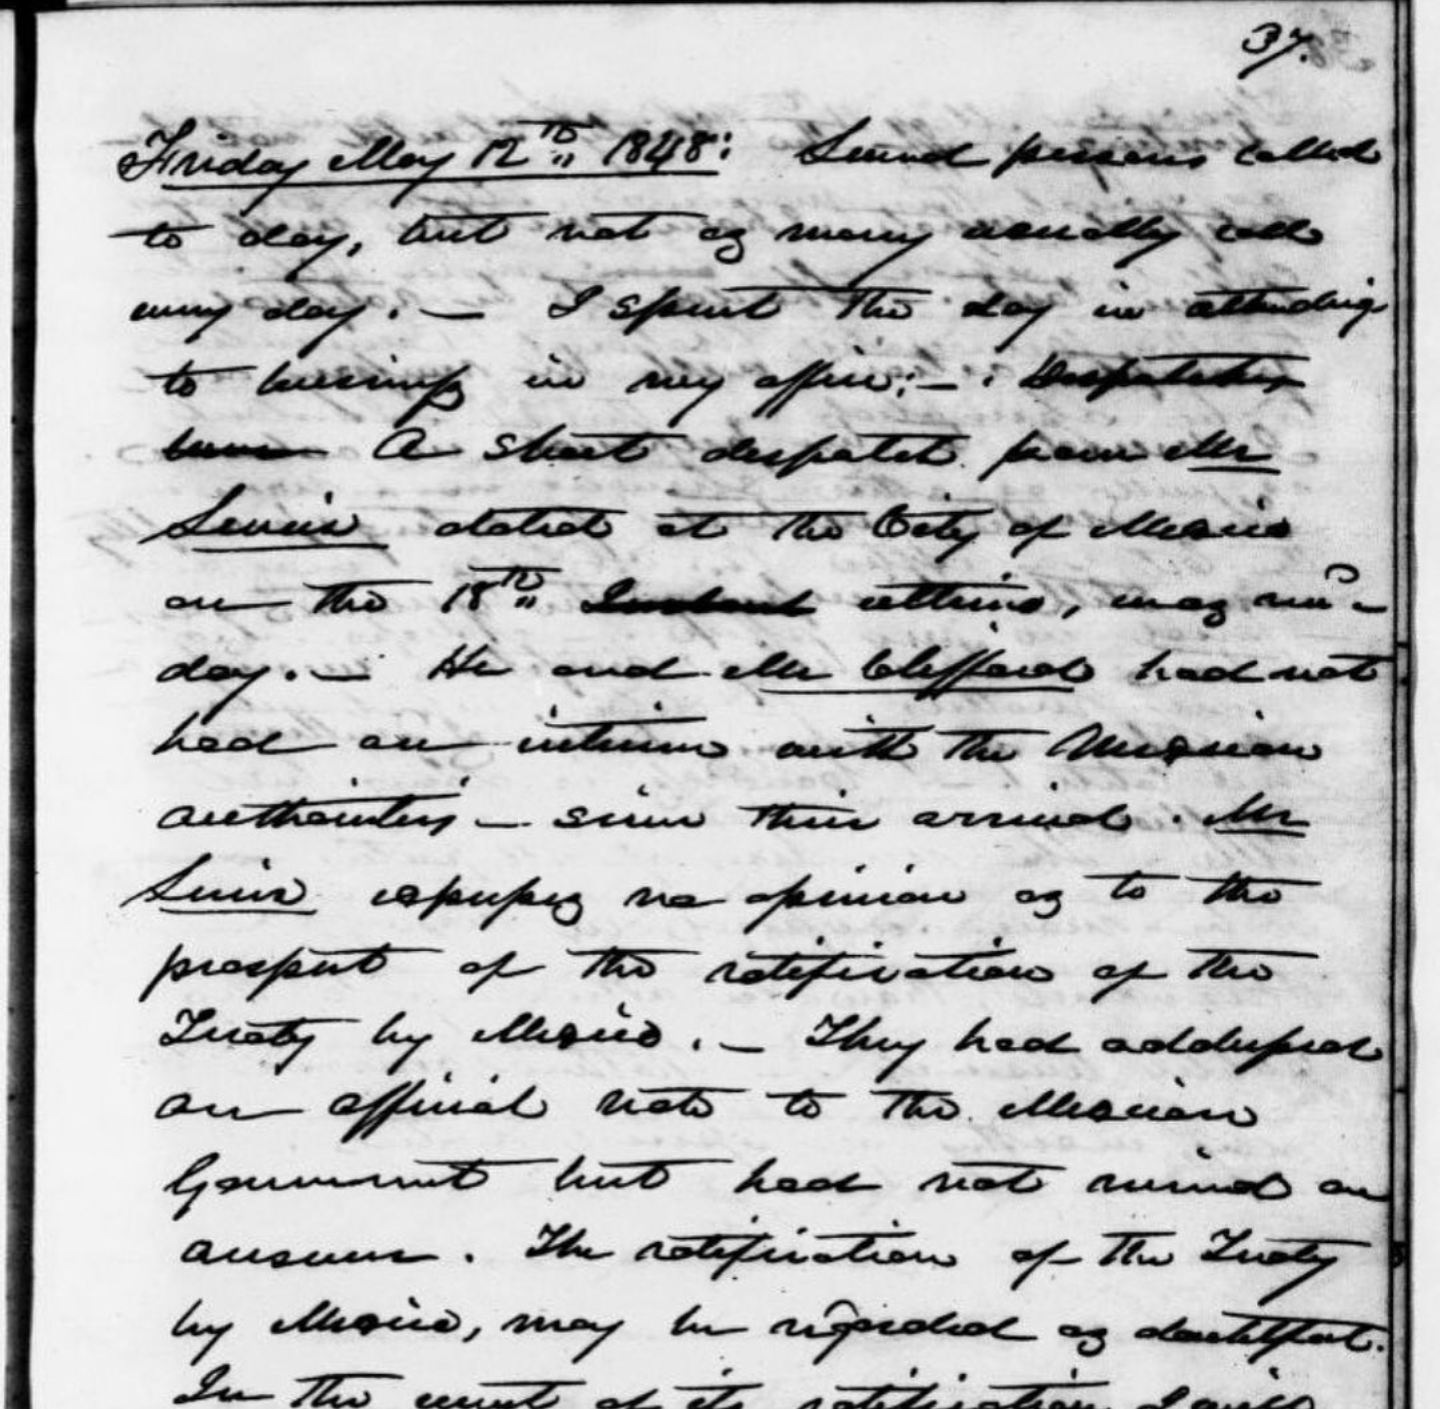 37.
Friday May 12th 1848: Several persons called
to day, but not as many usually call
every day. — I spent the day in attending
to business in my office: — . Despatches
A short despatch from Mr
Sevier dated at the City of Mexico
on the 18th Instant ultimo, was rec'd
day. — He and Mr Clifford had not
had an interview with the Mexican
authorities — since their arrival. Mr
Sevier expresses no opinion as to the
prospect of the ratification of the
Treaty by Mexico. — They had addressed
an official note to the Mexican
Government but had not received an
answer. The ratification of the Treaty
by Mexico, may be regarded as doubtful.
In the event of its ratification I will